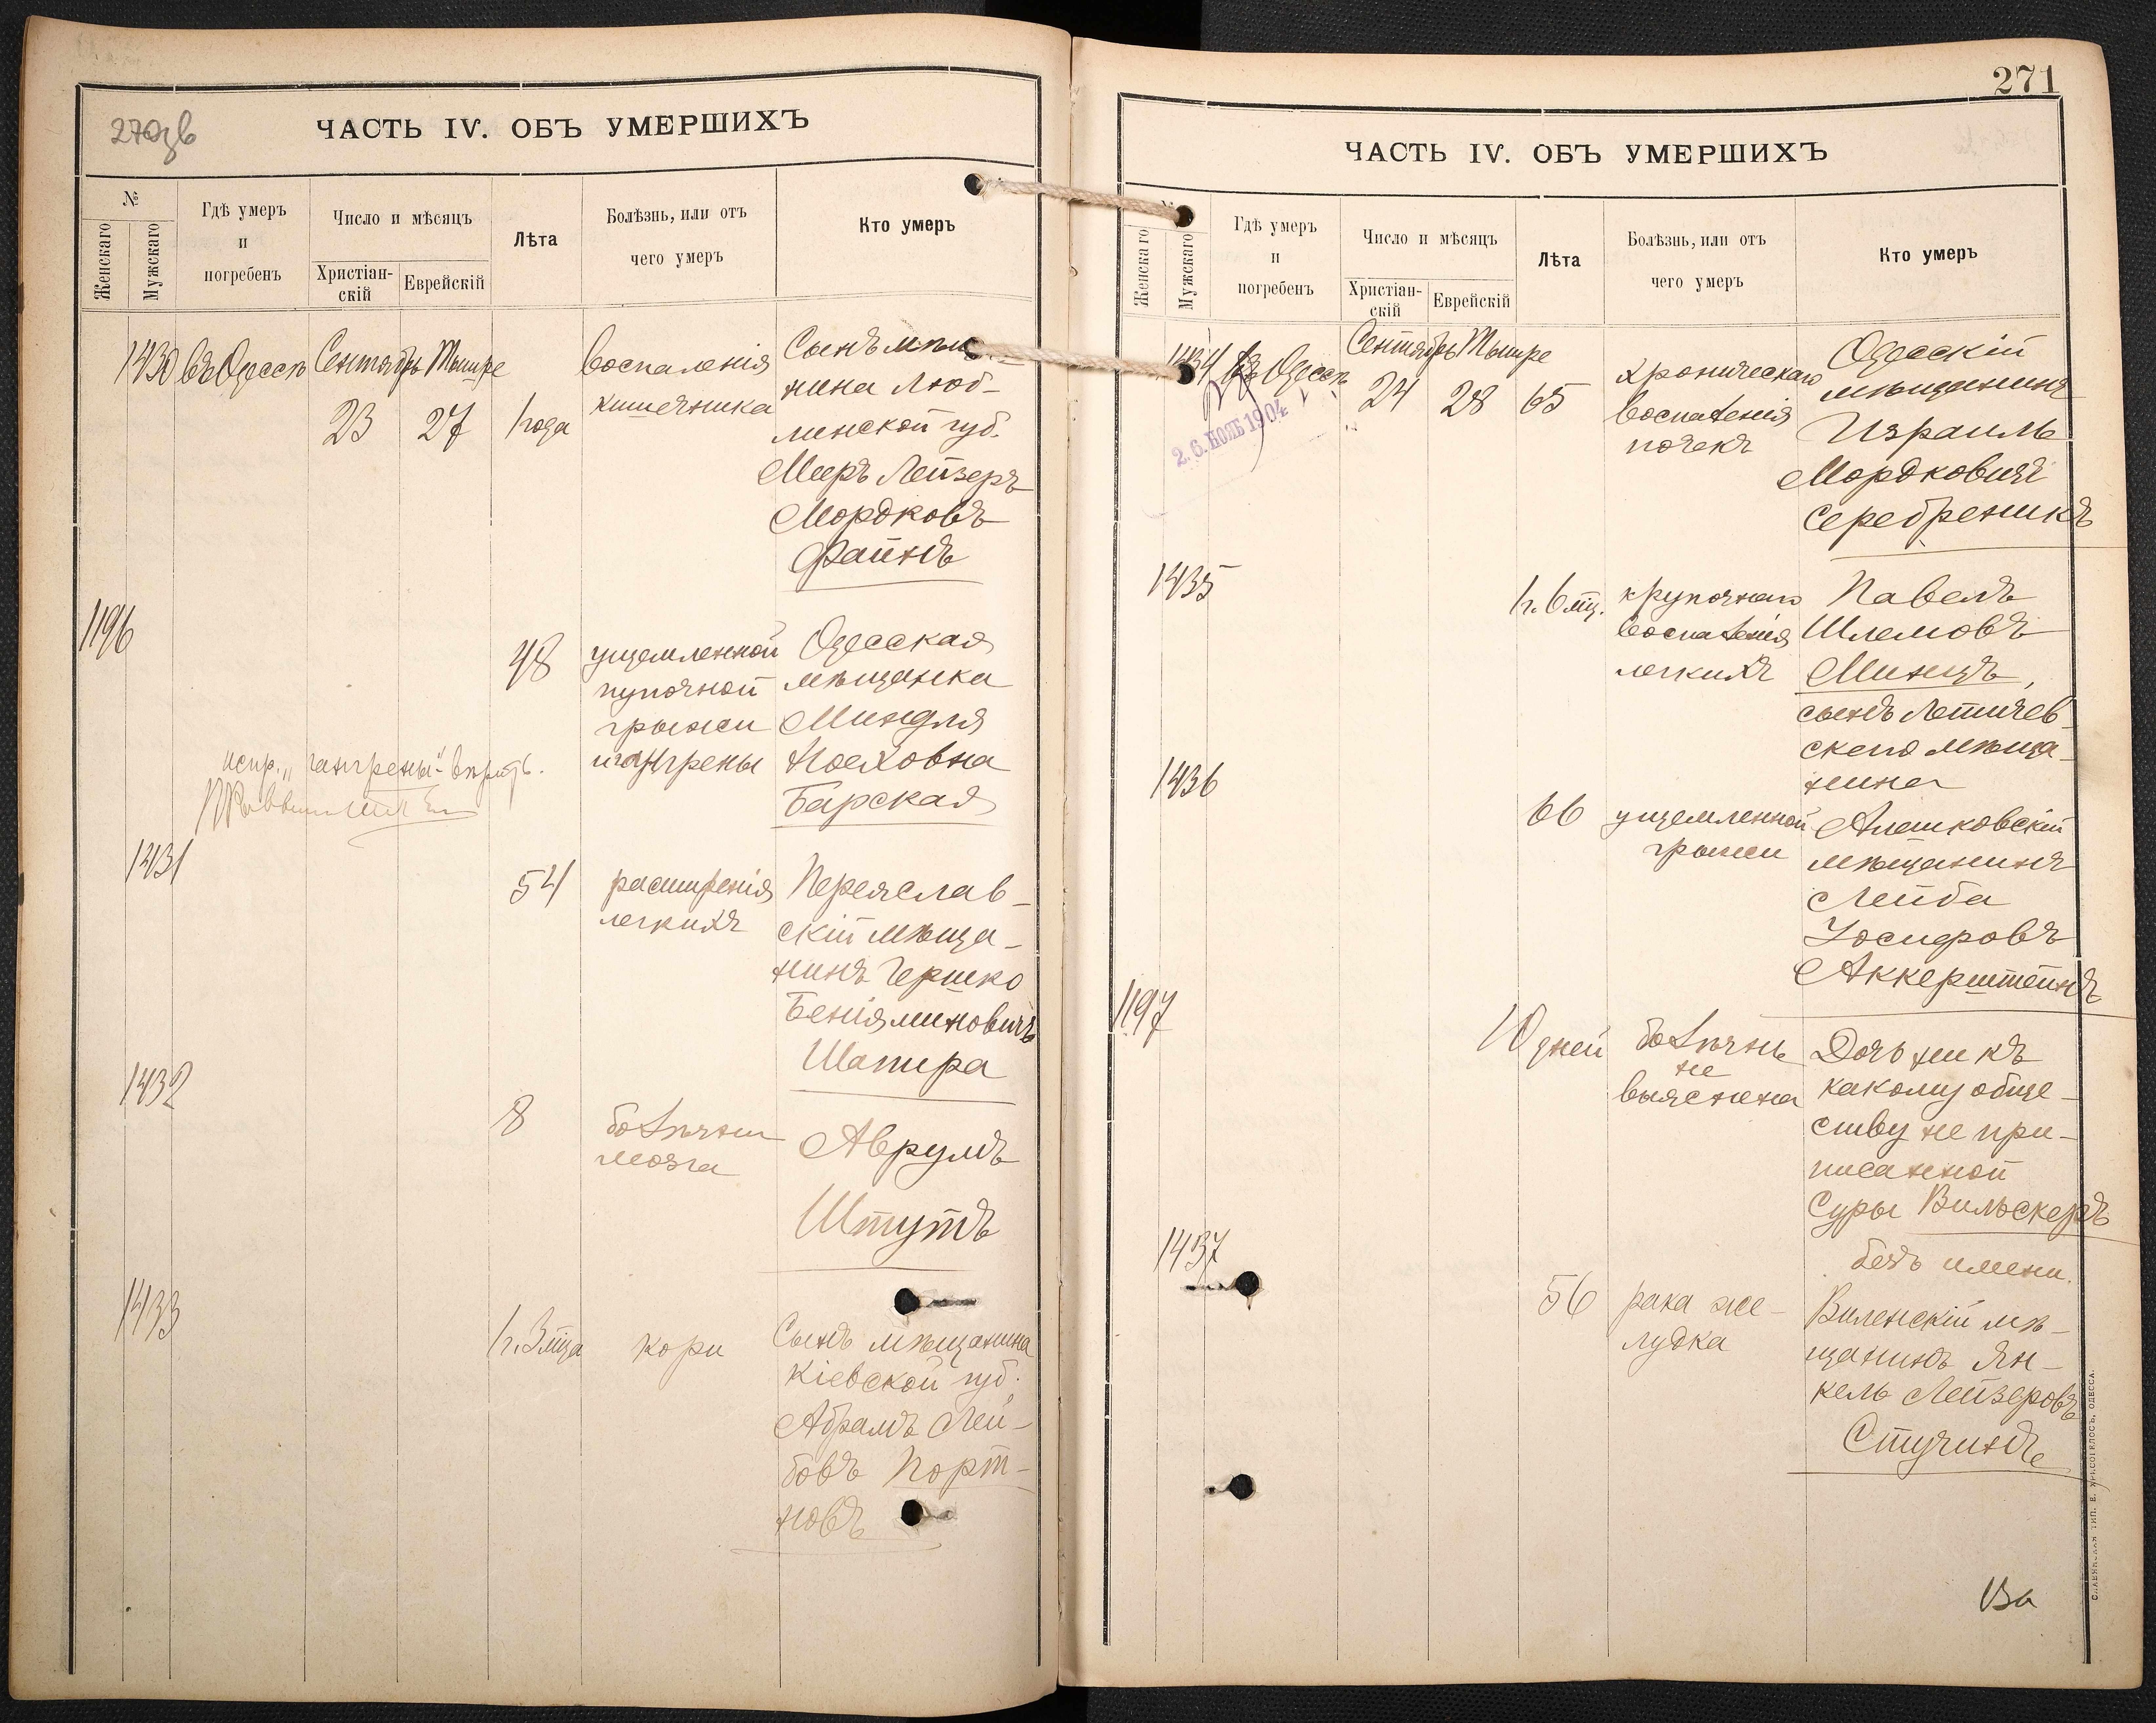 ЧАСТЬ IV. ОБЪ УМЕРШИХЪ
№
Женскаго
Мужскаго
Гдѣ умеръ
и
погребенъ
Число и мѣсяцъ
Христіан-
скій
Еврейскій
Лѣта
Болѣзнь, или отъ
чего умеръ
Кто умеръ
1430
въ Одессѣ
Сентябрь Тышре
23
27
1 года
воспаленія
кишечника
Сынъ
нина Люб-
линской губ.
Мееръ Лейзеръ
Мордковъ
Файнъ
1196
48
ущемленной
пупочной
грыжи
и гангрены
Одесская
мѣщанка
Миндля
Ноеховна
Барская
испр. „гангрены“ вѣрить.
1431
54
расширенія
легкихъ
Переяслав-
скій мѣща-
нинъ Гершко
Беніяминовичъ
Шапира
1432
8
болѣзни
мозга
Аврумъ
Штутъ
1433
1 г. 3 мца
кори
Сынъ мѣщанина
Кіевской губ.
Абрамъ Лей-
бовъ Порт-
новъ
271
ЧАСТЬ IV. ОБЪ УМЕРШИХЪ
Женскаго
Мужскаго
Гдѣ умеръ
и
погребенъ
Число и мѣсяцъ
Христіан-
скій
Еврейскій
Лѣта
Болѣзнь, или отъ
чего умеръ
Кто умеръ
1434
въ Одессѣ
Сентябрь Тышре
24
28
65
хроническаго
воспаленія
почекъ
Одесскій
мѣщанинъ
Израиль
Мордковичъ
Серебреникъ
2.6.НОЯБ 1904
1435
1 г. 6 мц.
крупознаго
воспаленія
легкихъ
Павелъ
Шлемовъ
Минцъ,
сынъ Летичев
скаго мѣща-
нина
1436
66
ущемленной
грыжи
Алешковскій
мѣщанинъ
Лейба
Іосифовъ
Аккерштейнъ
1197
10 дней
болѣзнь
не
выяснена
Дочь ни къ
какому обще-
ству не при-
писанной
Суры Вильскеръ
безъ имени.
1437
56
рака же-
лудка
Виленскій мѣ-
щанинъ Ян-
кель Лейзеровъ
Стучинъ
СЛАВЯНСКАЯ ТИП. Е. ХРИСОГЕЛОСЪ, ОДЕССА.